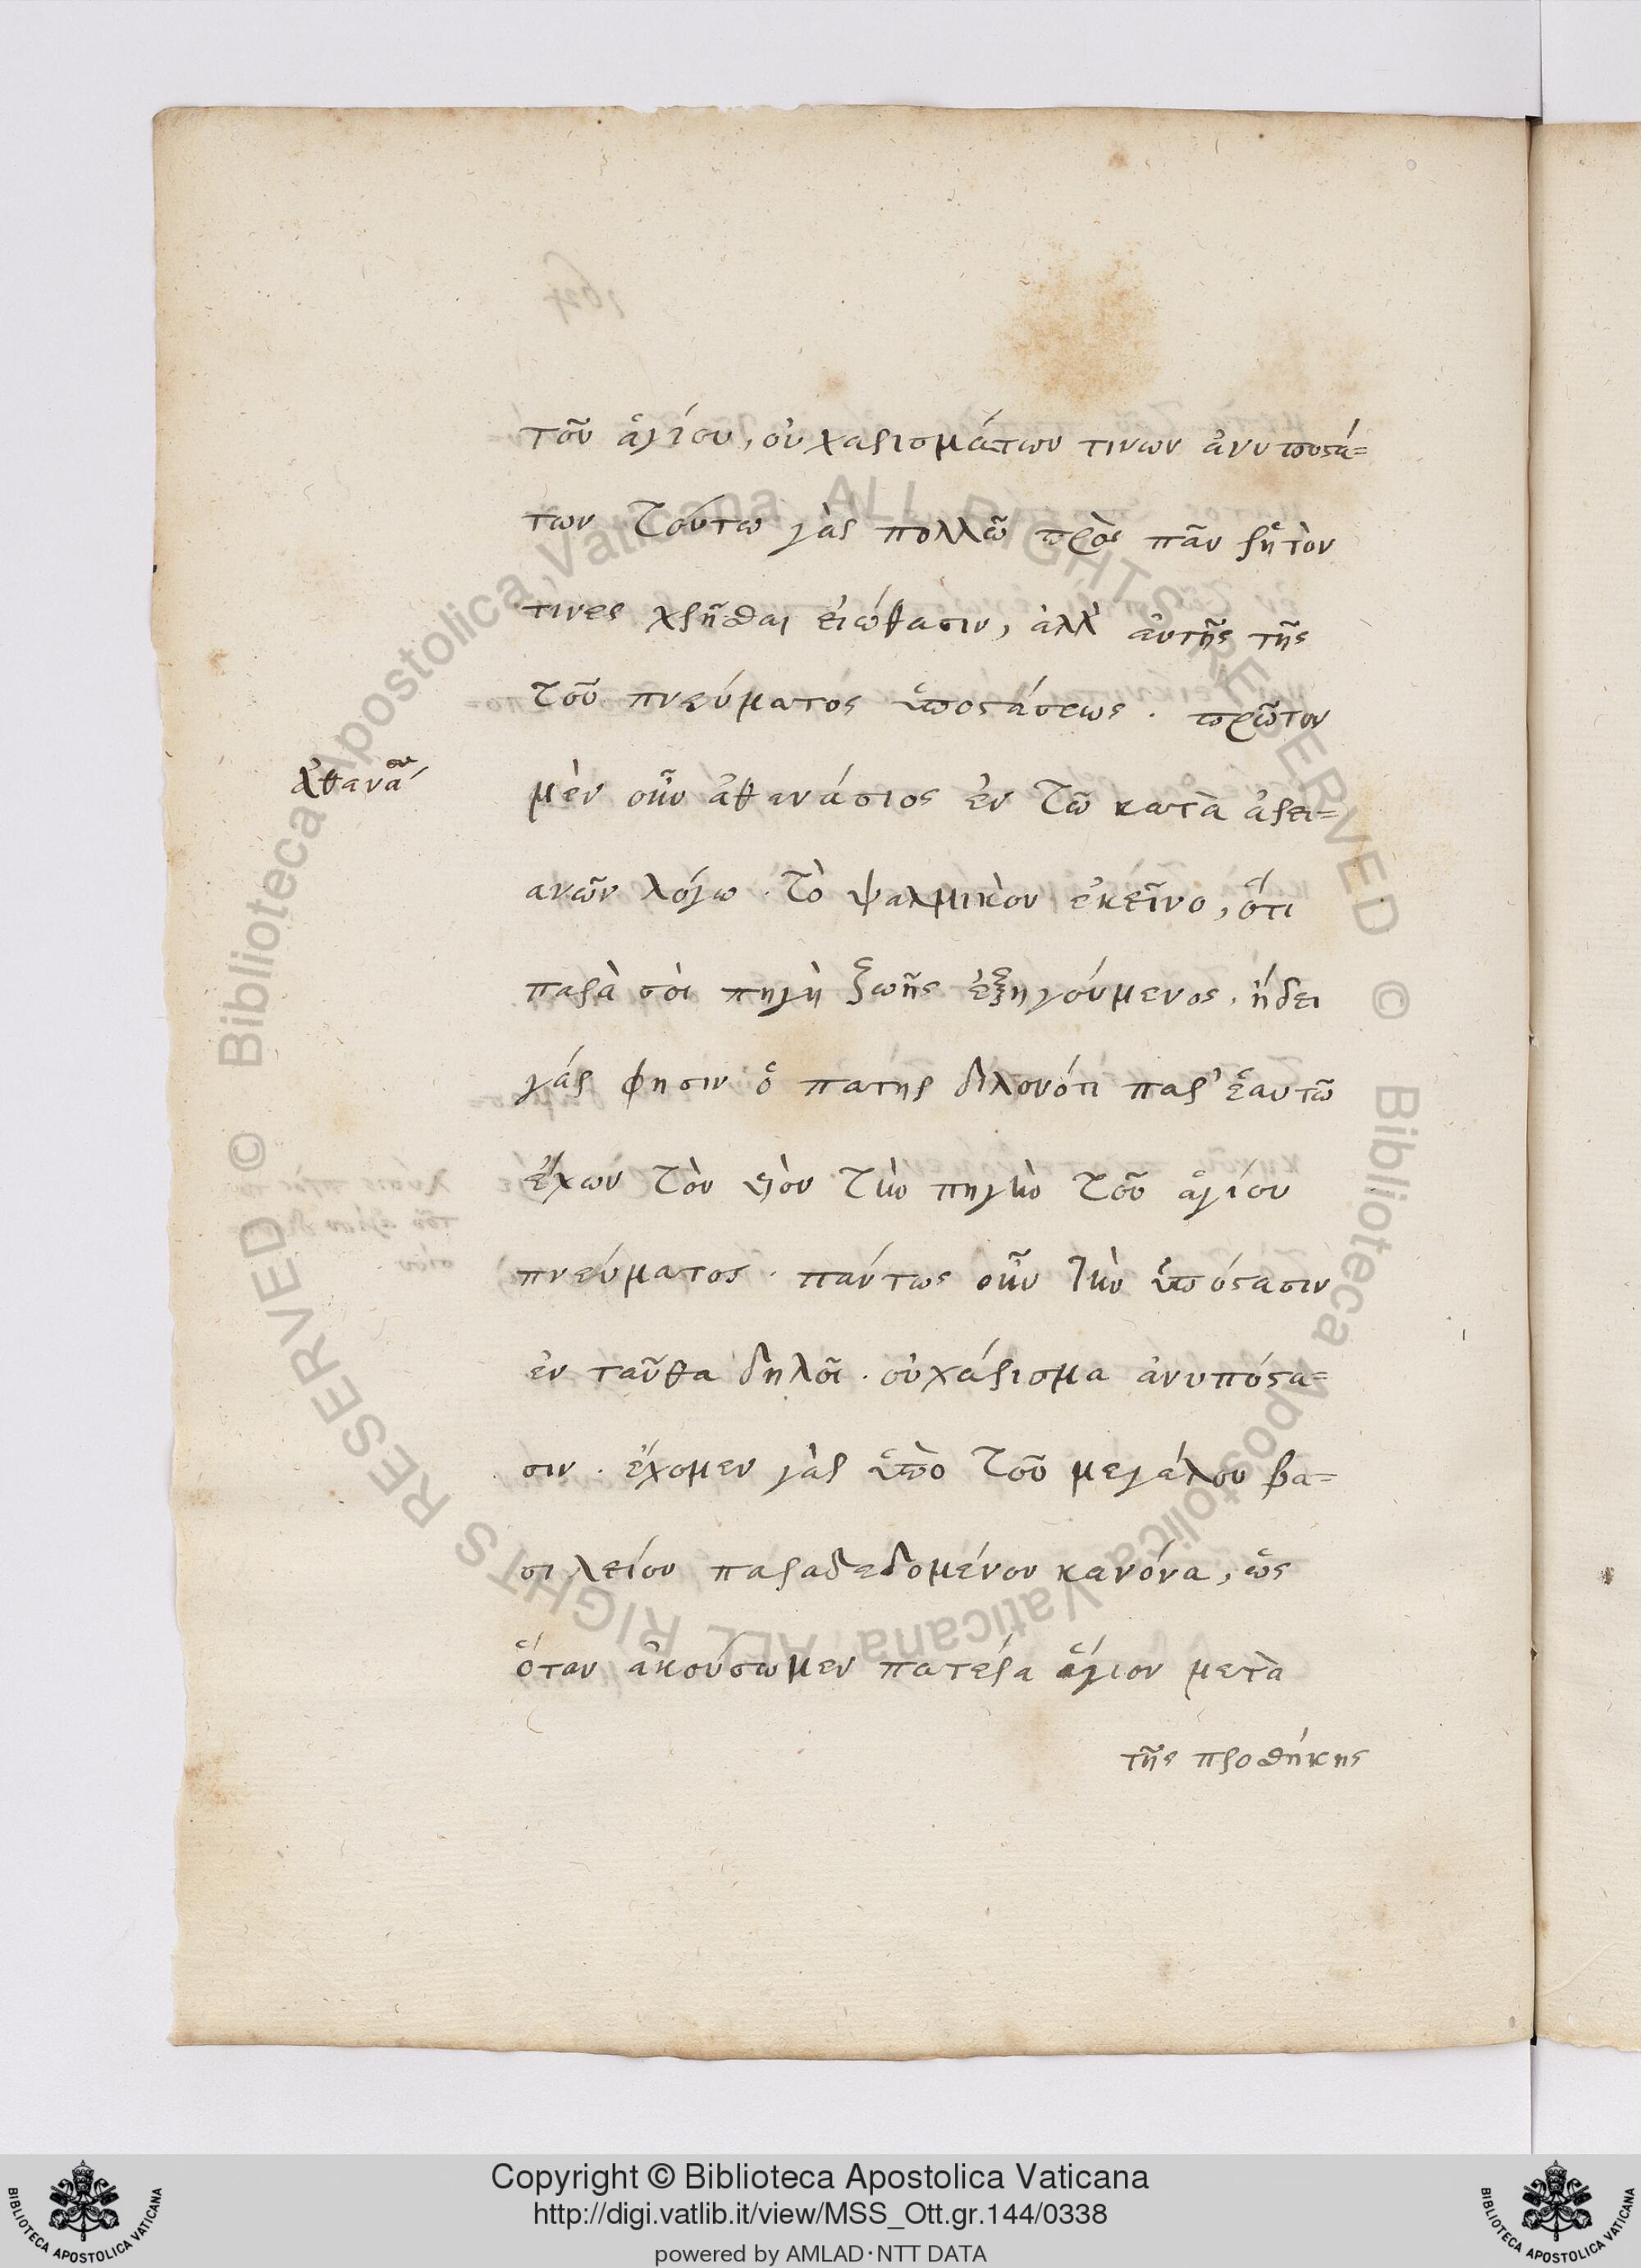 τοῦ ἁγίου, οὐ χαρισμάτων τινων ἀνυποστά=
των τούτω γὰρ πολλῶ πρὸς πᾶν ῥητὸν
τινες χρῆσθαι εἰώθασιν, ἀλλ' αὐτῆς τῆς
τοῦ πνεύματος ὑποστάσεως . πρῶτον
Ἀθανασίου
μὲν οὖν ἀθανάσιος ἐν τῶ κατὰ ἀρει=
ανῶν λόγω . τὸ ψαλμικὸν ἐκεῖνο, ὅτι
παρὰ σοὶ πηγὴ ζωῆς ἐξηγούμενος . ἤδει
γάρ φησιν ὁ πατηρ δηλονότι παρ' ἑαυτῶ
ἔχων τὸν υἱὸν τὴν πηγὴν τοῦ ἁγίου
πνεύματος . πάντως οὖν τὴν ὑπόστασιν
ἐν ταῦθα δηλοῖ . οὐ χάρισμα ἀνυπόστα=
σιν . ἔχομεν γὰρ ὑπὸ τοῦ μεγάλου βα=
σιλείου παραδεδομένον κανόνα, ὡς
ὅταν ἀκούσωμεν πατέρα ἅγιον μετὰ
τῆς προσθήκης
Biblioteca Apostolica Vaticana ALL RIGHTS RESERVED ©
Biblioteca Apostolica Vaticana ALL RIGHTS RESERVED ©
Copyright © Biblioteca Apostolica Vaticana
http://digi.vatlib.it/view/MSS_Ott.gr.144/0338
powered by AMLAD·NTT DATA
BIBLIOTECA APOSTOLICA VATICANA
BIBLIOTECA APOSTOLICA VATICANA